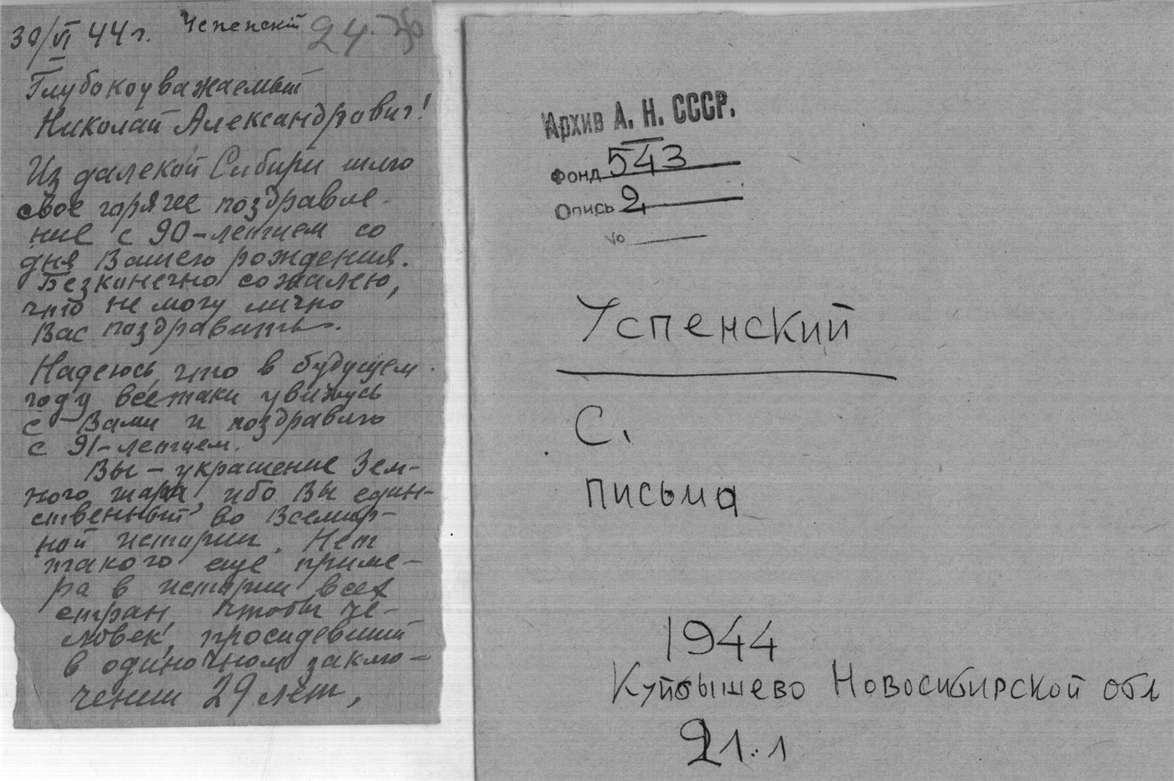 30/VI 44 г. Успенский
Глубокоуважаемый
Николай Александрович!
Из далекой Сибири шлю
свое горячее поздравле-
ние с 90-летием со
дня Вашего рождения.
Безконечно сожалею,
что не могу лично
Вас поздравить.
Надеюсь, что в будущем
году все таки увижусь
с Вами и поздравлю
с 91-летием.
Вы – украшение Зем-
ного шара, ибо Вы един-
ственный во Всемир-
ной истории. Нет
такого еще приме-
ра в истории всех
стран, чтобы че-
ловек, просидевший
в одиночном заклю-
чении 29 лет,
Архив А. Н. СССР.
Фонд 543
Опись 2
№
Успенский
С.
письма
1944
Куйбышево Новосибирской обл